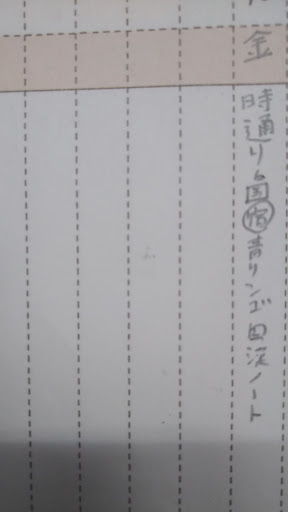 金
時通り 国宿青リンゴ四沢ノート